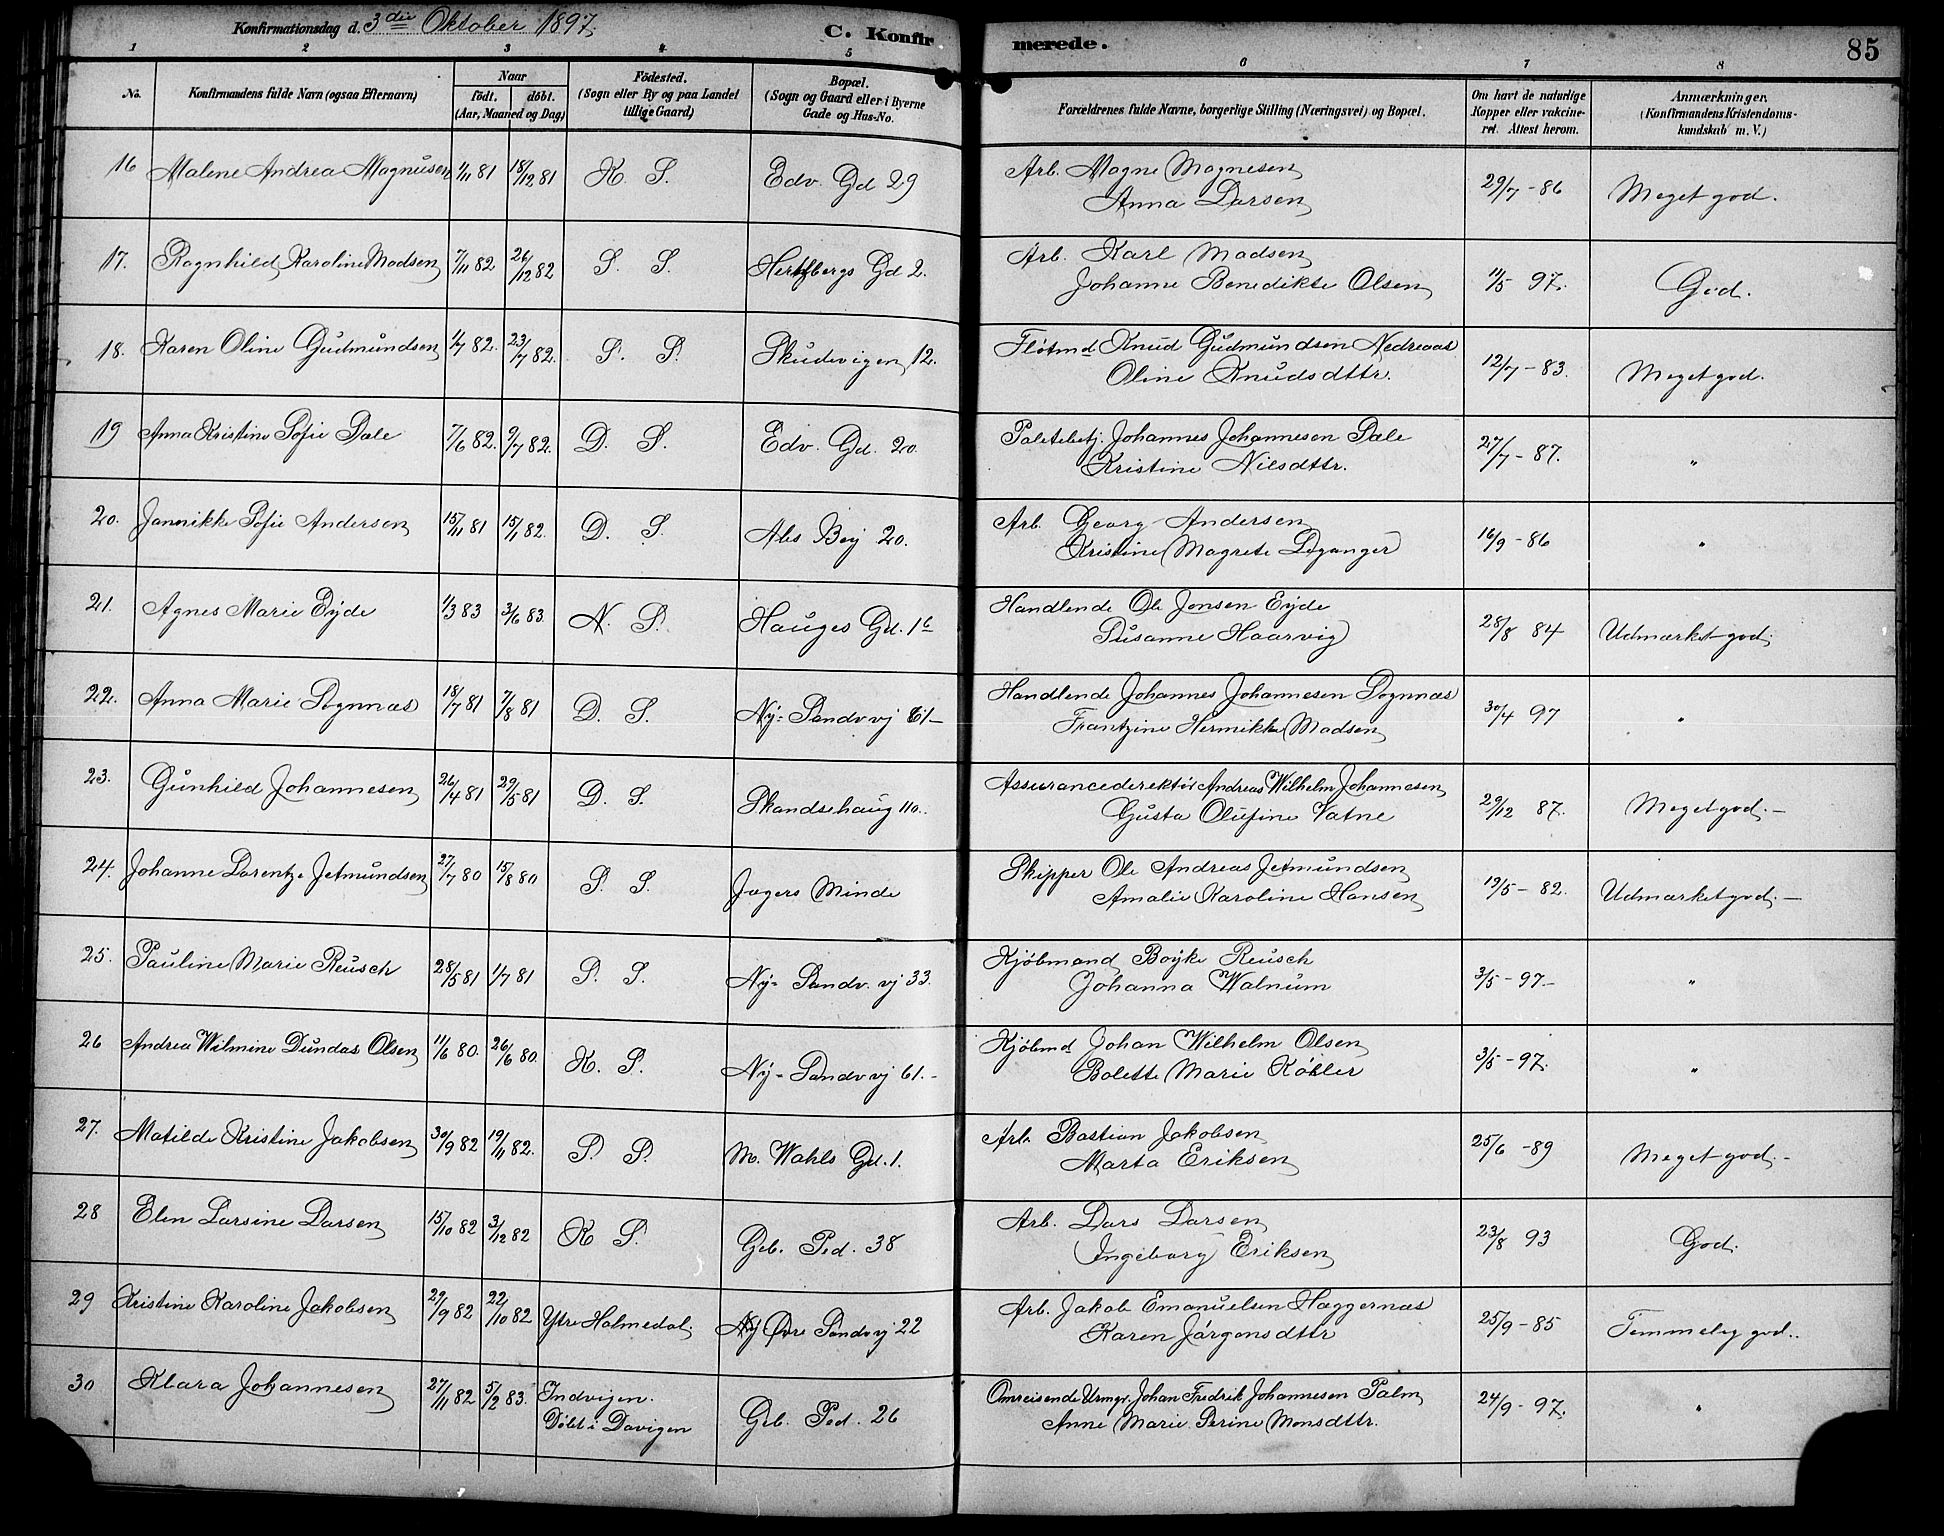 Konfirmationsdag d. 3die Oktober 1897.
C. Konfirmerede.
85
1 2 3 4 5 6 7 8
No.
Konfirmandens fulde Navn (ogsaa Efternavn)
Naar
födt. döbt.
(Aar, Maaned og Dag)
Födested.
(Sogn eller By og paa Landet
tillige Gaard)
Bopæl.
(Sogn og Gaard eller i Byerne
Gade og Hus-No.
Forældrenes fulde Navne, borgerlige Stilling (Næringsvei) og Bopæl.
Om havt de naturlige
Kopper eller vakcine-
ret. Attest herom.
Anmærkninger.
(Konfirmandens Kristendoms-
kundskab m. V.)
16 Malene Andrea Magnusen 1/11 81 18/12 81 K. S. Edv. Gd 29 Arb. Magne Magnesen 29/7 - 86 Meget god.
Anna Larsen
17. Ragnhild Karoline Madsen 7/11 82 26/12 82 S. S. Hertzbergs Gd 2. Arb. Karl Madsen 11/5 97. God.
Johanne Benedikte Olsen
18. Karen Oline Gudmundsen 1/7 82. 23/7 82. S. S. Skudevigen 12. Fløtmd Knud Gudmundsen Nedreaas 12/7 - 83. Meget god.
Oline Knudsdttr.
19 Anna Kristine Sofie Dale 7/6 82. 9/7 82. D. S. Edv. Gd. 20. Johannes Johannesen Dale 27/7 - 87. "
Kristine Nilsdttr.
20. Jannikke Sofie Andersen 15/11 81 15/1 82. D. S. 20. Arb. Georg Andersen 16/9 - 86 "
Kristine Magrete Leganger
21. Agnes Marie Eyde 1/3 83 3/6 83. N. S. Hauges Gd. 16 Handlende Ole Jonsen Eyde 28/8 84 Udmærket god.
Susanne Haarvig
22. Anna Marie Sognnæs 18/7 81 7/8 81 D. S. Ny- Sandv vj 61 - Handlende Johannes Johannesen Sognnæs 30/4 97 "
Frantzine Hennikke Madsen
23. Gunhild Johannesen 26/4 81 29/5 81 D. S. Skandsehaug 110. Assurancedirektör Andreas Wilhelm Johannesen 29/12 87. Meget god. -
Gusta Olufine Vatne
24. Johanne Lorentze Jetmundsen 27/7 80 15/8 80 S. S. Jægers Minde Skipper Ole Andreas Jetmundsen 19/5 - 82. Udmærket god. -
Amalie Karoline Hansen
25. Pauline Marie Reusch 28/5 81 1/7 81 S. S. Ny- Sandv. vj 33. Kjöbmand Boyke Reusch 3/5 - 97 - "
Johanna Walnum
26 Andrea Wilmine Dundas Olsen 11/6 80. 26/6 80. K. S. Ny- Sandv vj 61. - Kjöbmd Johan Wilhelm Olsen 3/5 - 97. "
Bolette Marie Köhler
27. Matilde Kristine Jakobsen 30/9 82 19/11 82. S. S. M. Wahls Gd. 1. Arb. Bastian Jakobsen 25/6 - 89 Meget god. -
Marta Eriksen
28 Elen Larsine Larsen 15/10 82 3/12 82 K S. Geb. Sed. 38 Arb. Lars Larsen 23/8 93 God.
Ingeborg Eriksen
29 Kristine Karoline Jakobsen 29/9 82 22/10 82 Ytre Holmedal. Øvre Sandvj 22 Arb. Jakob Emanuelsen Haggernæs 25/9 - 85 Temmelig god..
Karen Jörgensdttr
30 Klara Johannesen 27/11 82 5/2 83. Indvigen. Geb. Sed. 26 Omreisende Urmgr. Johan Fredrik Johannesen Palm 24/9 - 97. "
Döbt i Davigen Anne Marie Serine Monsdttr.